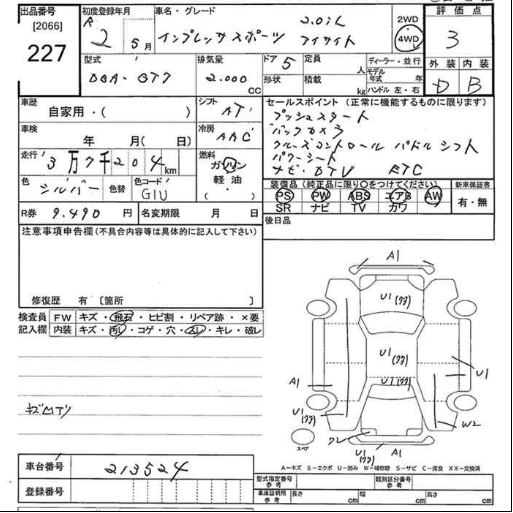 出品番号 初度登録年月 車名・グレード 評価点
[2066] R 2 5月 インプレッサスポーツ 2.0iL アイサイト 2WD 4WD 3
227
型式 排気量 ドア 5 定員 人 ディーラー・並行 外装 内装
DBA-GT7 2.000 cc 形状 積載 kg モデル年式 年 ハンドル 左・右 D B
車歴 自家用・( ) シフト AT セールスポイント (正常に機能するものに限ります)
プッシュスタート
車検 年 月( 日) 冷房 AAC バックカメラ
クルーズコントロール パドルシフト
走行 3万7千204km 燃料 ガソリン 軽油 パワーシート
ナビ・DTV ETC
色 シルバー 色替 色コード G1U 装備品 (純正品に限り○をつけてください) 新車保証書
PS PW ABS エアB AW 有・無
R券 9.490 円 名変期限 月 日 SR ナビ TV カワ
注意事項申告欄(不具合内容等は具体的に記入して下さい) 後日品
修復歴 有 [箇所 ]
検査員 FW キズ・飛石・ヒビ割・リペア跡・×要
記入欄 内装 キズ・汚レ・コゲ・穴・スレ・キレ・破レ
A1
U1(カ)
U1(カ)
A1 U1
U1(カ) U1(カ) W2
スペア U1 A1
U1(カ)
車台番号 213524
A−キズ E−エクボ U−凹み W−補修跡 S−サビ C−腐食 XX−交換済
登録番号
型式指定番号 参考 類別区分番号 参考
車庫証明用 参考 長さ cm 幅 cm 高さ cm